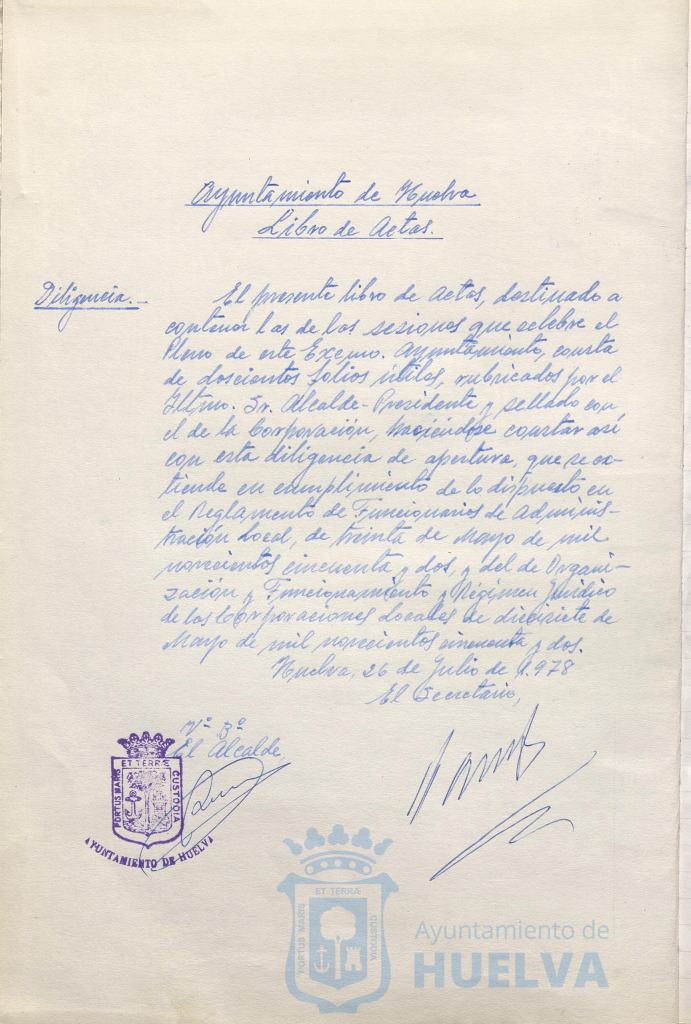 Ayuntamiento de Huelva
Libro de Actas.
Diligencia.-
El presente libro de actas, destinado a
contener las de las sesiones que celebre el
Pleno de este Excmo. Ayuntamiento, consta
de doscientos folios útiles, rubricados por el
Iltmo. Sr. Alcalde-Presidente y sellado con
el de la Corporación, haciéndose constar así
con esta diligencia de apertura, que se ex-
tiende en cumplimiento de lo dispuesto en
el Reglamento de Funcionarios de Adminis-
tración Local, de treinta de Mayo de mil
novecientos cincuenta y dos, y del de Organi-
zación y Funcionamiento y Régimen Jurídico
de las Corporaciones Locales de diecisiete de
Mayo de mil novecientos cincuenta y dos.
Huelva, 26 de Julio de 1.978
El Secretario,
Vº Bº
El Alcalde
ET TERRÆ
PORTUS MARIS
CUSTODIA
AYUNTAMIENTO DE HUELVA
ET TERRÆ
PORTUS MARIS
CUSTODIA
Ayuntamiento de
HUELVA